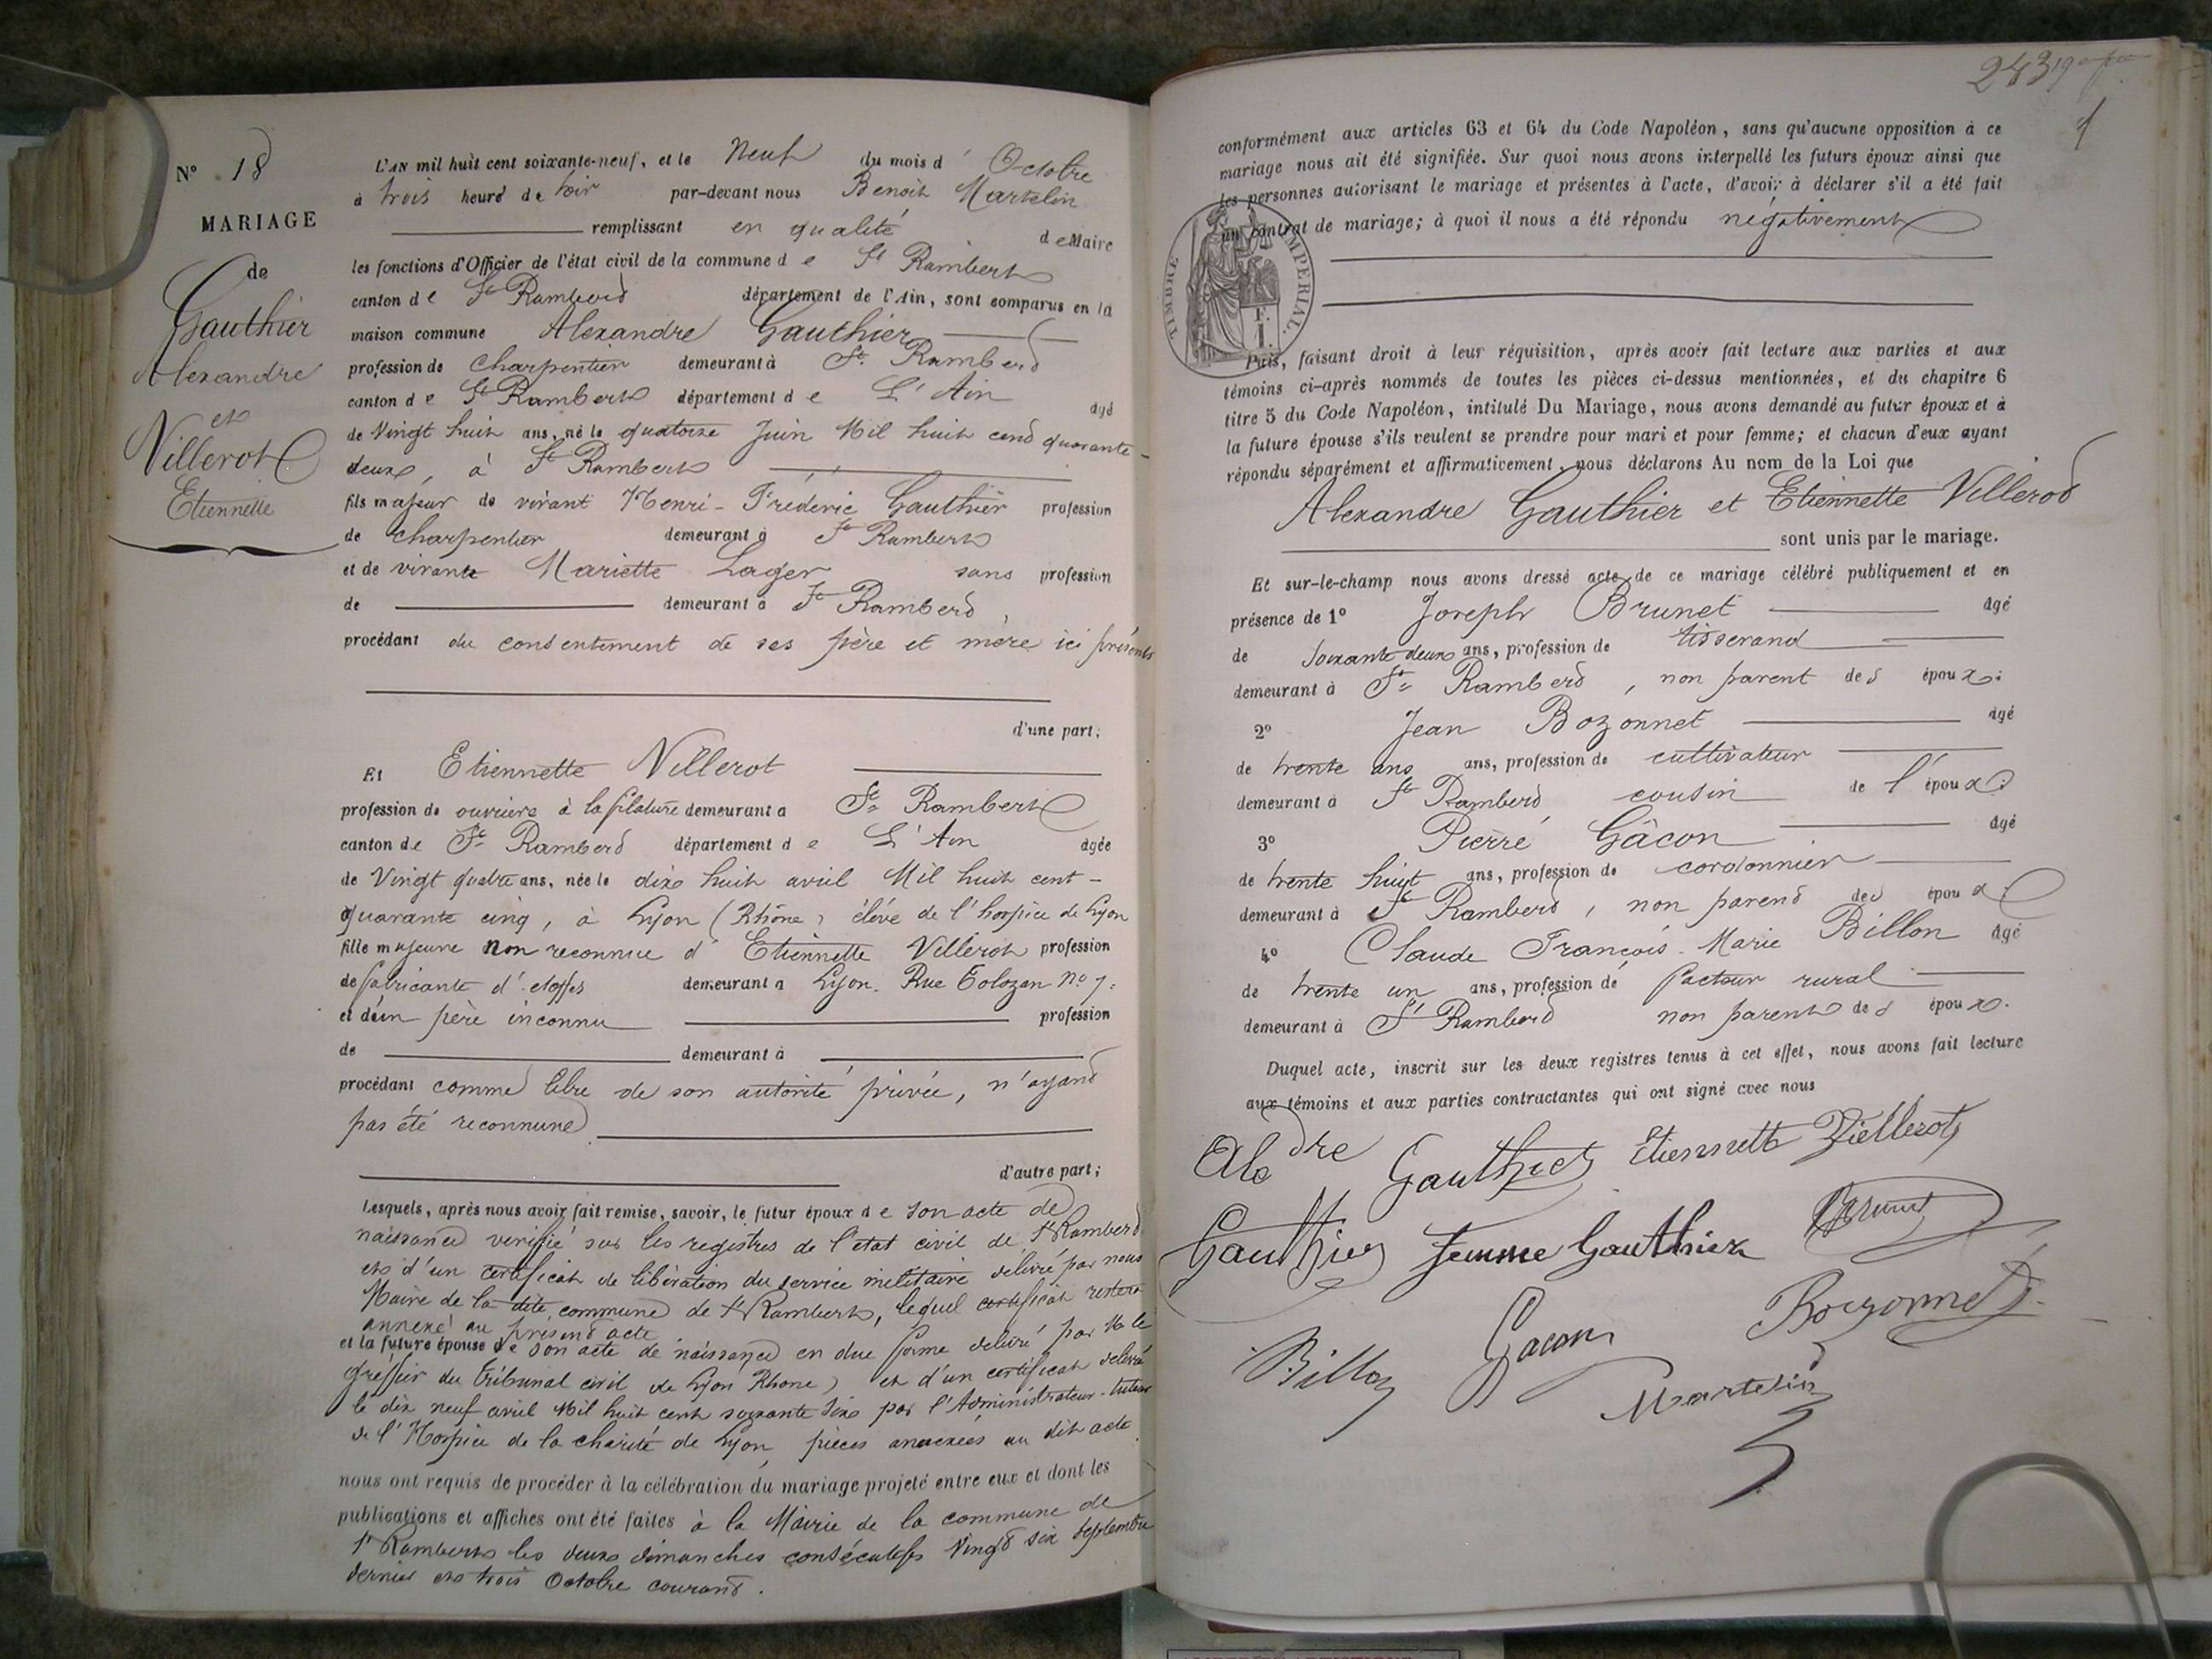 N° 18
MARIAGE
de
Gauthier
Alexandre
et
Villerot
Etiennette
L'AN mil huit cent soixante-neuf, et le Neuf du mois d' Octobre
à trois heurs de soir par-devant nous Benoît Martelin
remplissant en qualité de Maire
les fonctions d'Officier de l'état civil de la commune de St Rambert
canton de St Rambert département de l'Ain, sont comparus en la
maison commune Alexandre Gauthier
profession de charpentier demeurant à St Rambert
canton de St Rambert département de L'Ain âgé
de Vingt huit ans, né le quatorze Juin Mil huit cent quarante-
deux, à St Rambert
fils majeur de vivant Henri-Fréderic Gauthier profession
de charpentier demeurant à St Rambert
et de vivante Mariette Lager sans profession
de demeurant à St Rambert,
procédant du consentement de ses père et mère ici présents
d'une part;
Et Etiennette Villerot
profession de ouvrière à la filature demeurant à St Rambert
canton de St Rambert département de L'Ain âgée
de Vingt quatre ans, née le dix huit avril Mil huit cent-
quarante cinq, à Lyon (Rhône) élève de l'hospice de Lyon
fille majeure non reconnue d'Etiennette Villerot profession
de fabricante d'étoffes demeurant à Lyon. Rue Tolozan No 7.
et d'un père inconnu profession
de demeurant à
procédant comme libre de son autorité privée, n'ayant
pas été reconnue
d'autre part;
Lesquels, après nous avoir fait remise, savoir, le futur époux de son acte de
naissance vérifié sur les registres de l'état civil de St Rambert
et d'un certificat de libération du service militaire délivré par nous
Maire de la dite commune de St Rambert, lequel certificat restera
annexé au présent acte
et la future épouse de son acte de naissance en due forme délivré par Mr le
greffier du tribunal civil de Lyon Rhone) et d'un certificat délivré
le dix neuf avril Mil huit cent soixante six par l'Administrateur-tuteur
de l'Hospice de la charité de Lyon, pièces annexées au dit acte.
nous ont requis de procéder à la célébration du mariage projeté entre eux et dont les
publications et affiches ont été faites à la Mairie de la commune de
St Rambert les deux dimanches consécutifs Vingt six septembre
dernier et trois Octobre courant.
243
conformément aux articles 63 et 64 du Code Napoléon, sans qu'aucune opposition à ce
mariage nous ait été signifiée. Sur quoi nous avons interpellé les futurs époux ainsi que
les personnes autorisant le mariage et présentes à l'acte, d'avoir à déclarer s'il a été fait
un contrat de mariage; à quoi il nous a été répondu négativement
TIMBRE IMPERIAL.
Puis, faisant droit à leur réquisition, après avoir fait lecture aux parties et aux
témoins ci-après nommés de toutes les pièces ci-dessus mentionnées, et du chapitre 6
titre 5 du Code Napoléon, intitulé Du Mariage, nous avons demandé au futur époux et à
la future épouse s'ils veulent se prendre pour mari et pour femme; et chacun d'eux ayant
répondu séparément et affirmativement, nous déclarons Au nom de la Loi que
Alexandre Gauthier et Etiennette Villerot
sont unis par le mariage.
Et sur-le-champ nous avons dressé acte de ce mariage célébré publiquement et en
présence de 1° Joseph Brunet âgé
de soixante deux ans, profession de tisserand
demeurant à St Rambert, non parent des époux.
2° Jean Bozonnet âgé
de trente ans ans, profession de cultivateur
demeurant à St Rambert cousin de l'époux.
3° Pierre Gâcon âgé
de trente huit ans, profession de cordonnier
demeurant à St Rambert, non parent des époux.
4° Claude François-Marie Billon âgé
de trente un ans, profession de facteur rural
demeurant à St Rambert non parent des époux.
Duquel acte, inscrit sur les deux registres tenus à cet effet, nous avons fait lecture
aux témoins et aux parties contractantes qui ont signé avec nous
Aledre Gauthier Etiennette Viellerot
Gauthier femme Gauthier Brunet
Billon Gacon Bozonnet
Martelin